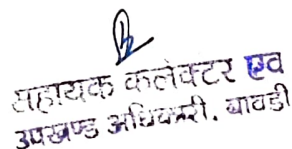 सहायक कलेक्टर एव
उपखण्ड अधिकारी. बावडी